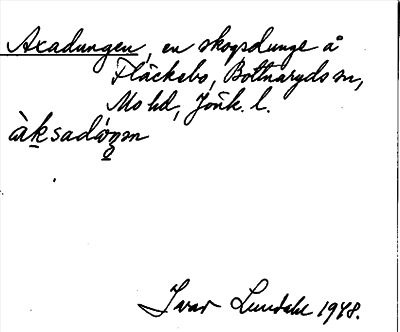 Axadungen, en skogsdunge å
Fläckebo, Bottnaryds sn,
Mo hd, Jönk. l.
àksadáŋ̣ən
Ivar Lundahl 1948.